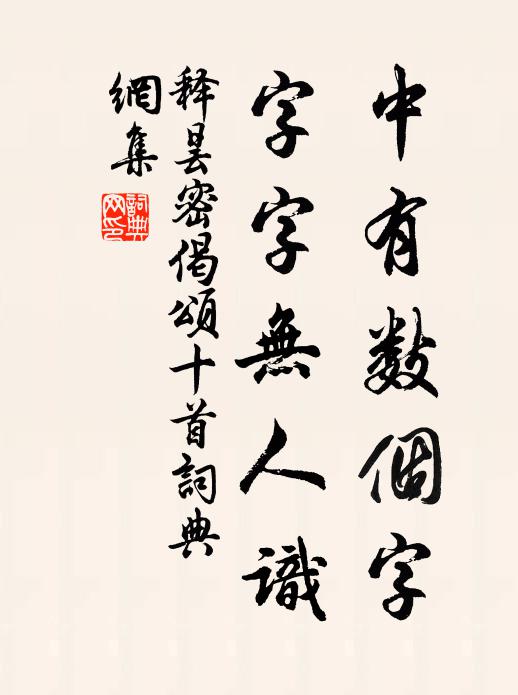 中有数個字
字字無人識
释昙密偈頌十首詞典
網集
詞典
网印